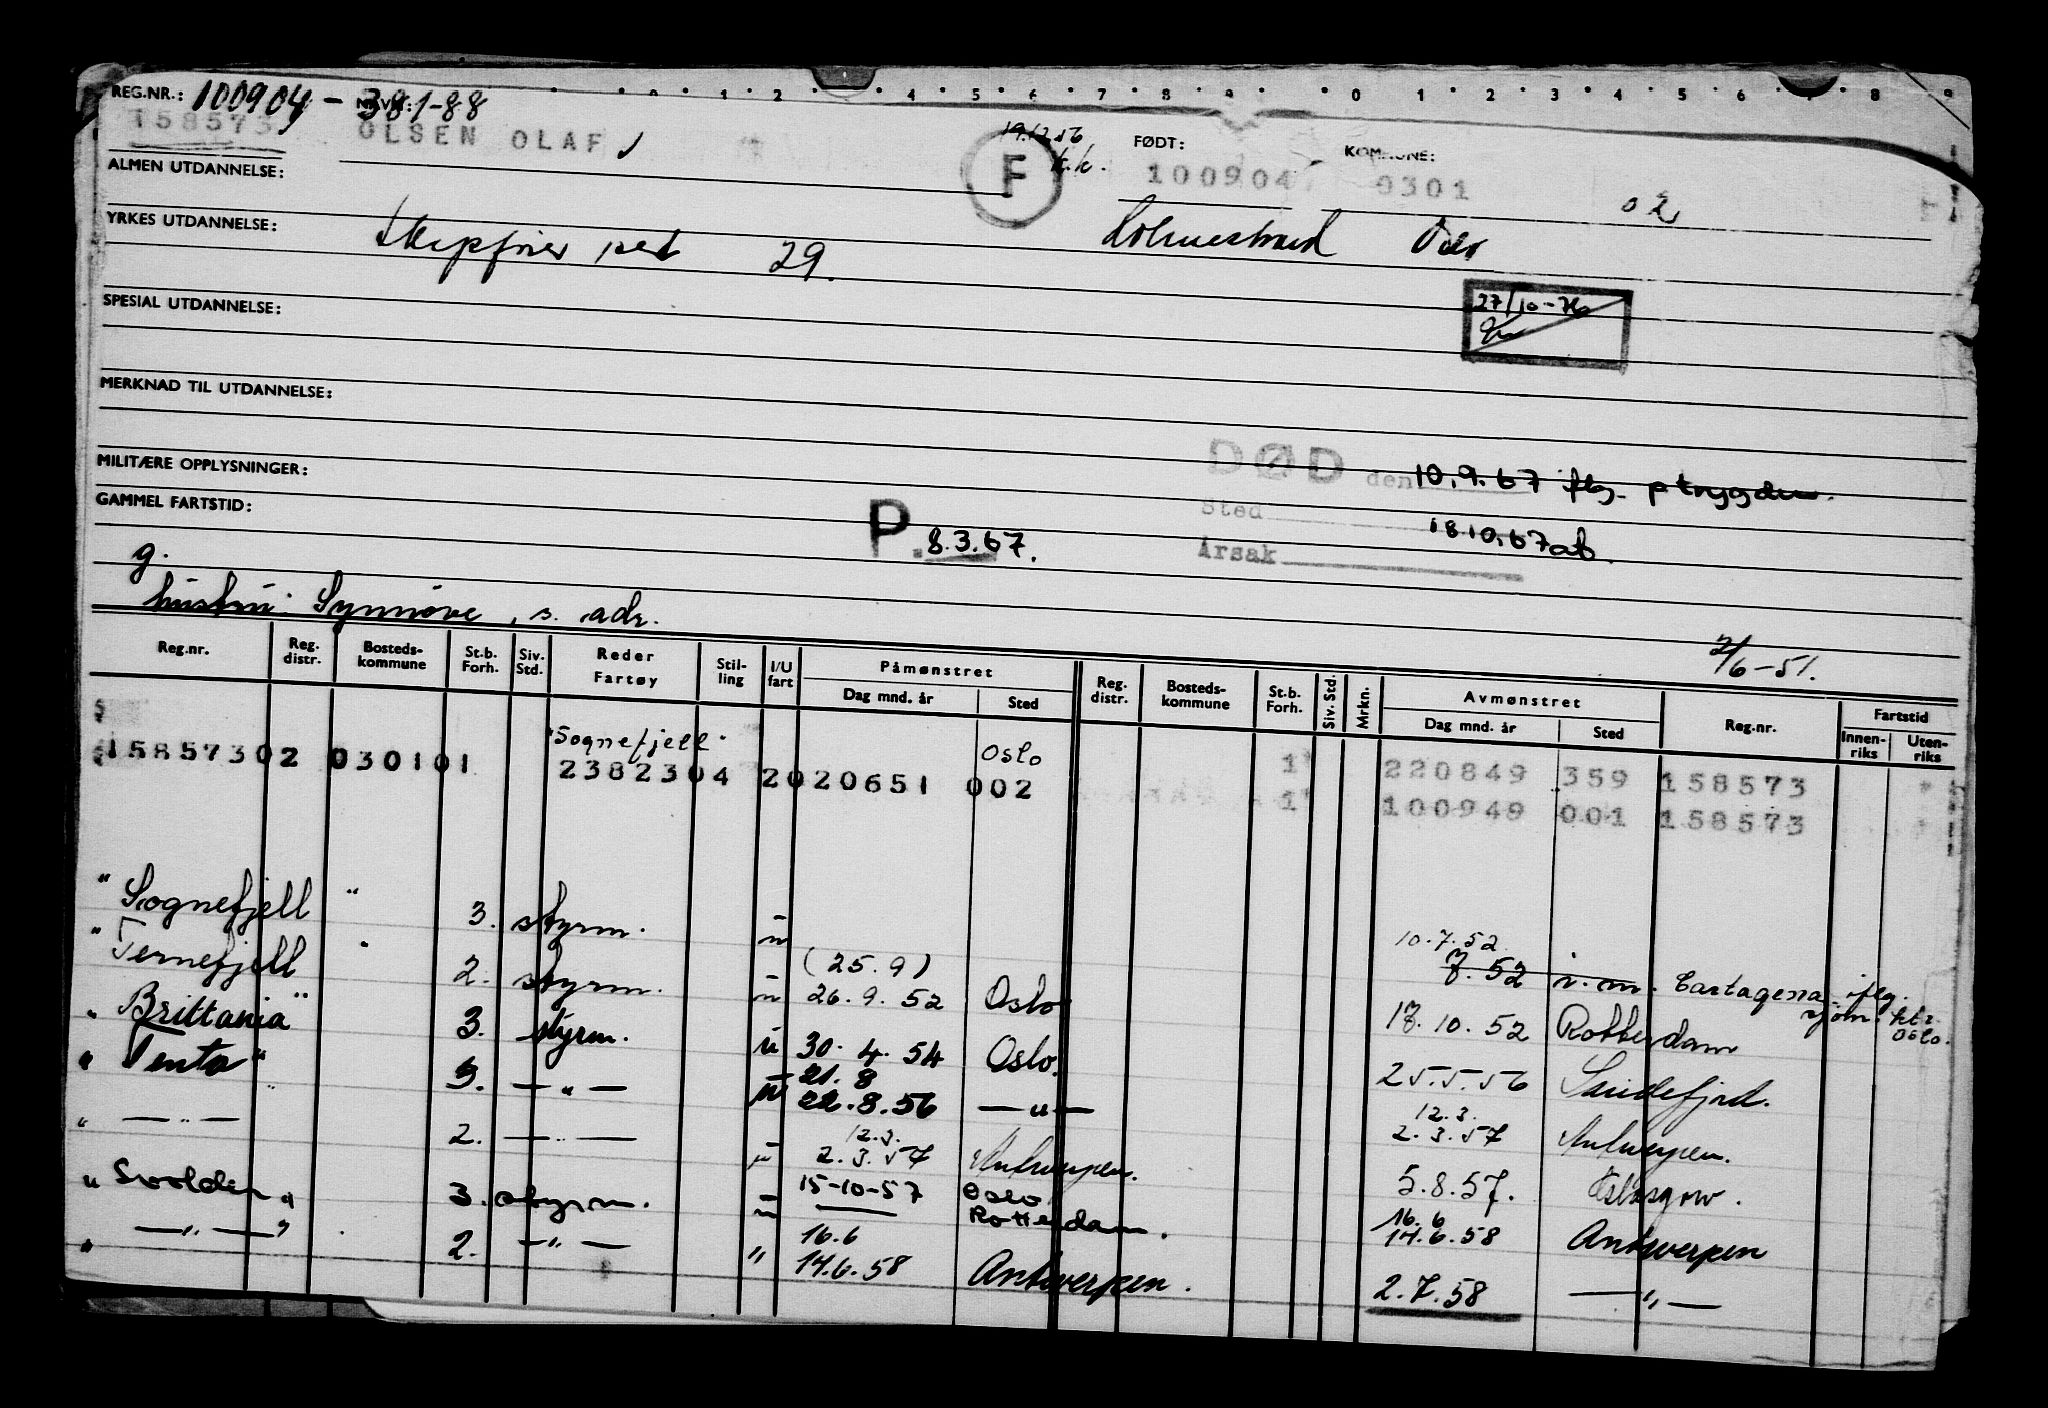 REG.NR.: 100904-38188
158573 OLSEN OLAF
19.12.56
k.k.
F
FØDT: 100904
KOMMUNE: 0301
02
ALMEN UTDANNELSE:
YRKES UTDANNELSE: Skipsfører 29.
Holmestrand Oslo
27/10-76
SPESIAL UTDANNELSE:
MERKNAD TIL UTDANNELSE:
MILITÆRE OPPLYSNINGER:
DØD den 10.9.67 flg. ptrygden.
GAMMEL FARTSTID:
P. 8.3.67.
Sted
18.10.67 ab.
Årsak
g.
hustru: Synnøve, s. adr.
2/6-51.
Reg.nr. Reg. distr. Bosteds-kommune St.b. Forh. Siv. Std. Reder Fartøy Stil-ling I/U fart Påmønstret Dag mnd. år Sted Reg. distr. Bosteds-kommune St.b. Forh. Siv. Std. Mrkn. Avmønstret Dag mnd. år Sted Reg.nr. Fartstid Innen-riks Uten-riks
"Sognefjell" Oslo
15857302 030101 2382304 2020651 002 1 220849 359 158573
1 100949 001 158573
"Sognefjell" 3. styrm. u 10.7.52
7.52 i.m. Cartagena iflg. sjøm. ktr. Oslo.
"Ternefjell" 2. styrm. u (25.9) 26.9.52 Oslo 17.10.52 Rotterdam
"Brittania" 3. styrm. u 30.4.54 Oslo. 25.5.56 Sandefjord.
"Tento" 3. — " — u 21.8 22.8.56 — " — 12.3. 2.3.57 Antwerpen.
" — " — 2. — " — u 12.3. 2.3.57 Antwerpen. 5.8.57. Glasgow.
"Svolder" 3. styrm. u 15-10-57 Oslo Rotterdam. 16.6 14.6.58 Antwerpen
" — " — " 2. — " — " 16.6 14.6.58 Antwerpen. 2.7.58 — " —